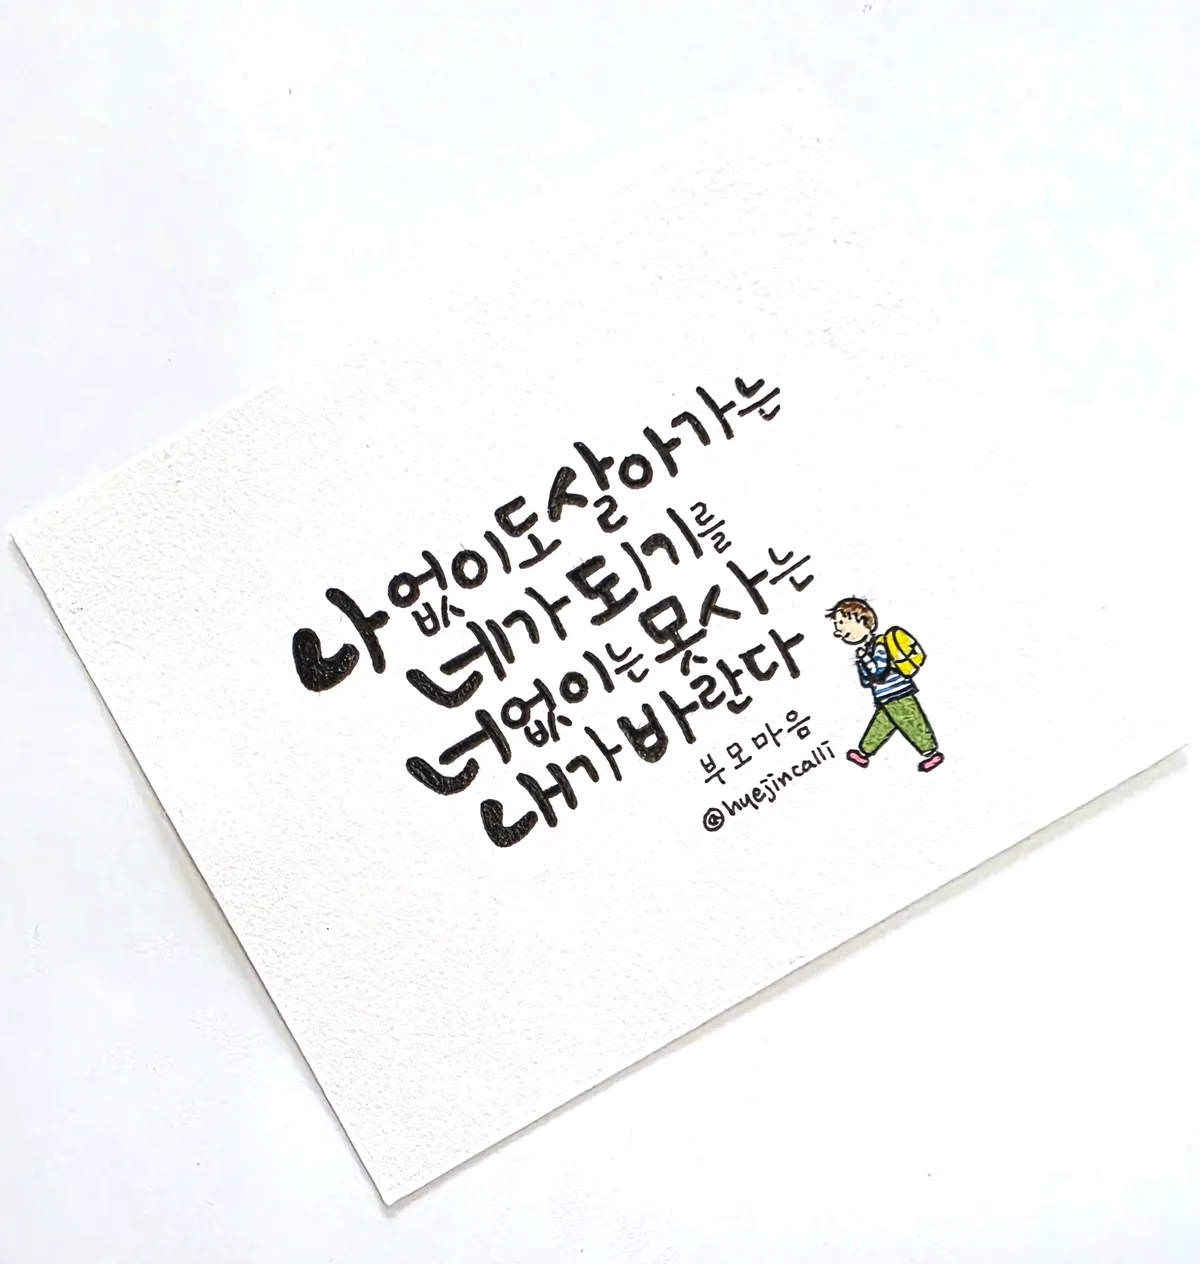 나 없이도 살아가는
네가 되기를
너 없이는 못 사는
내가 바란다
부모마음
@hyejincalli